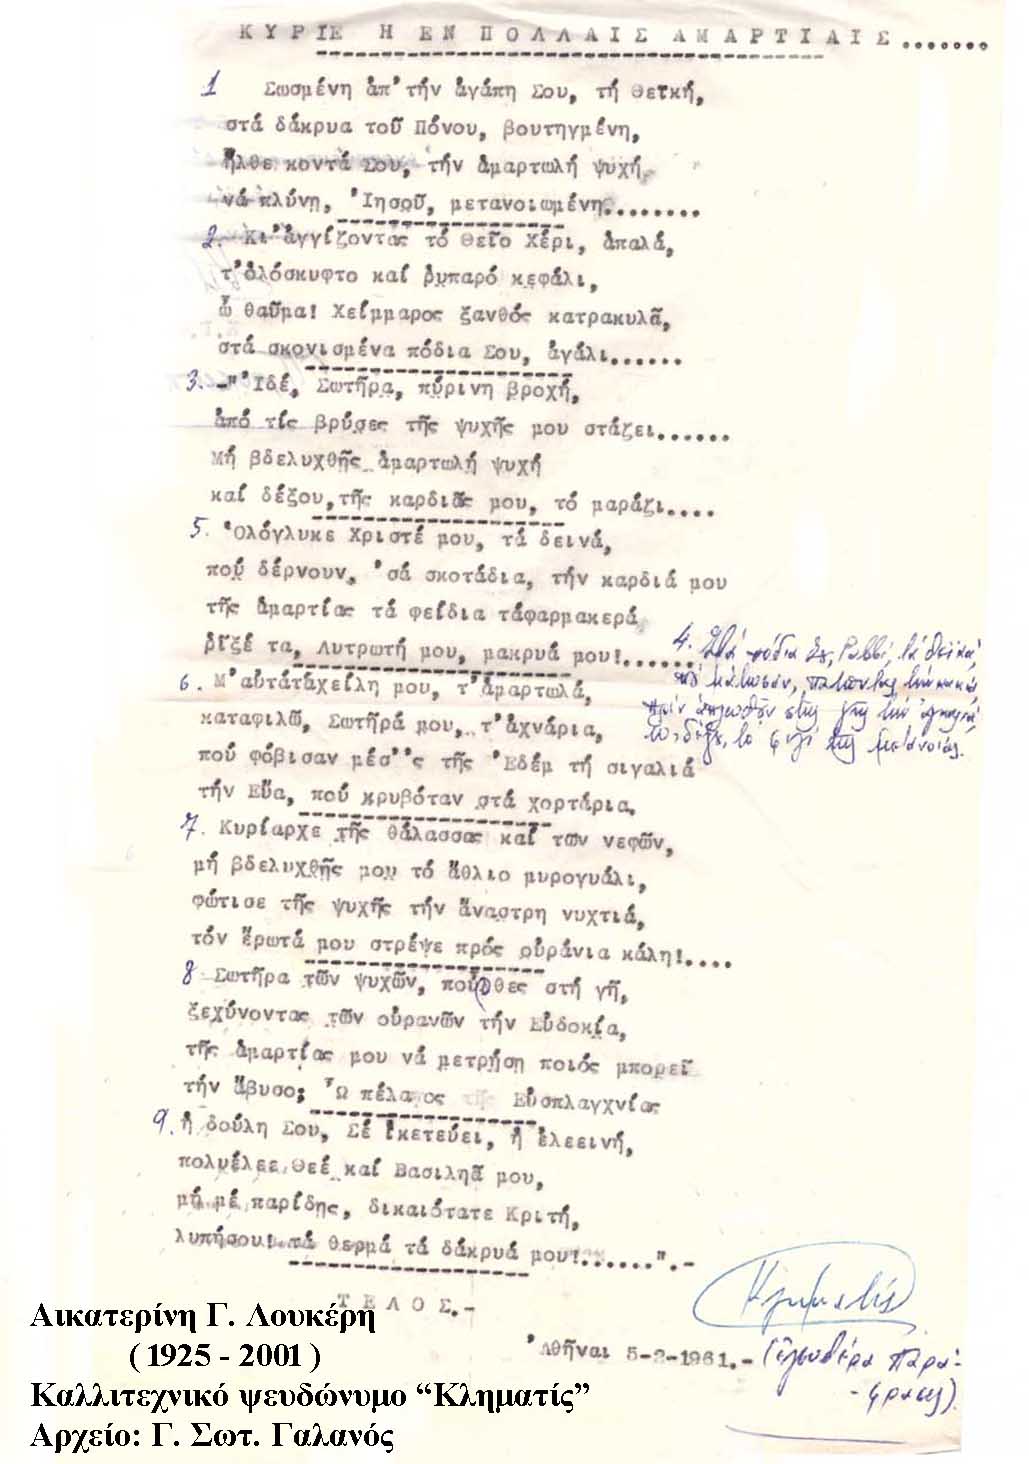 ΚΥΡΙΕ Η ΕΝ ΠΟΛΛΑΙΣ ΑΜΑΡΤΙΑΙΣ.......
1 Σωσμένη ἀπ' τήν ἀγάπη Σου, τή θεϊκή,
στά δάκρυα τοῦ Πόνου, βουτηγμένη,
ἦλθε κοντά Σου, τήν ἁμαρτωλή ψυχή
νά πλύνη, Ἰησοῦ, μετανοιωμένη........
2. Κι' ἀγγίζοντας τό Θεῖο Χέρι, ἁπαλά,
τ' ὁλόσκυφτο καί ρυπαρό κεφάλι,
ὦ θαῦμα! Χείμμαρος ξανθός κατρακυλᾶ,
στά σκονισμένα πόδια Σου, ἀγάλι......
3. -"Ἰδέ, Σωτῆρα, πύρινη βροχή,
ἀπό τίς βρύσες τῆς ψυχῆς μου στάζει......
Μή βδελυχθῆς ἁμαρτωλή ψυχή
καί δέξου, τῆς καρδιᾶς μου, τό μαράζι....
5. Ὁλόγλυκε Χριστέ μου, τά δεινά,
πού δέρνουν, 'σά σκοτάδια, τήν καρδιά μου
τῆς ἁμαρτίας τά φείδια τάφαρμακερά
ρῖξέ τα, Λυτρωτή μου, μακρυά μου!......
4. Στά πόδια Σου, Ραββί, τά θεϊκά,
πού μάτωσαν, πατώντας τήν κακία
πρίν ἁπλωθοῦν στῆς γῆς τήν
το, δέξε, το φιλί τῆς μετάνοιας.
6. Μ' αὐτάτάχείλη μου, τ' ἁμαρτωλά,
καταφιλῶ, Σωτῆρά μου, τ' ἀχνάρια,
πού φόβισαν μέσ' 'ς τῆς Ἐδέμ τή σιγαλιά
τήν Εὔα, πού κρυβόταν στά χορτάρια.
7. Κυρίαρχε τῆς θάλασσας καί τῶν νεφῶν,
μή βδελυχθῆς μου τό ἄθλιο μυρογυάλι,
φώτισε τῆς ψυχῆς τήν ἄναστρη νυχτιά,
τόν ἔρωτά μου στρέψε πρός οὐράνια κάλη!....
8 Σωτῆρα τῶν ψυχῶν, πού ρθες στή γῆ,
ξεχύνοντας τῶν οὐρανῶν τήν Εὐδοκία,
τῆς ἁμαρτίας μου νά μετρήση ποιός μπορεῖ
τήν ἄβυσο; Ὦ πέλαγος τῆς Εὐσπλαγχνίας
9. ἡ δούλη Σου, Σέ ἱκετεύει, ἡ ἐλεεινή,
πολυέλεε Θεέ καί Βασιληᾶ μου,
μή μέ παρίδης, δικαιότατε Κριτή,
λυπήσου! τά θερμά τά δάκρυά μου!......".-
ΤΕΛΟΣ.-
Κληματίς
Ἀθῆναι 5-2-1961.- (ἐλευθέρα παρά-
-φρασις).
Αικατερίνη Γ. Λουκέρη
( 1925 - 2001 )
Καλλιτεχνικό ψευδώνυμο “Κληματίς”
Αρχείο: Γ. Σωτ. Γαλανός